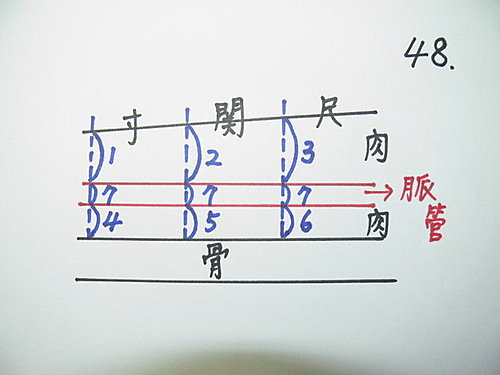 48.
寸 関 尺
1 2 3 肉
7 7 7 → 脈管
4 5 6 肉
骨